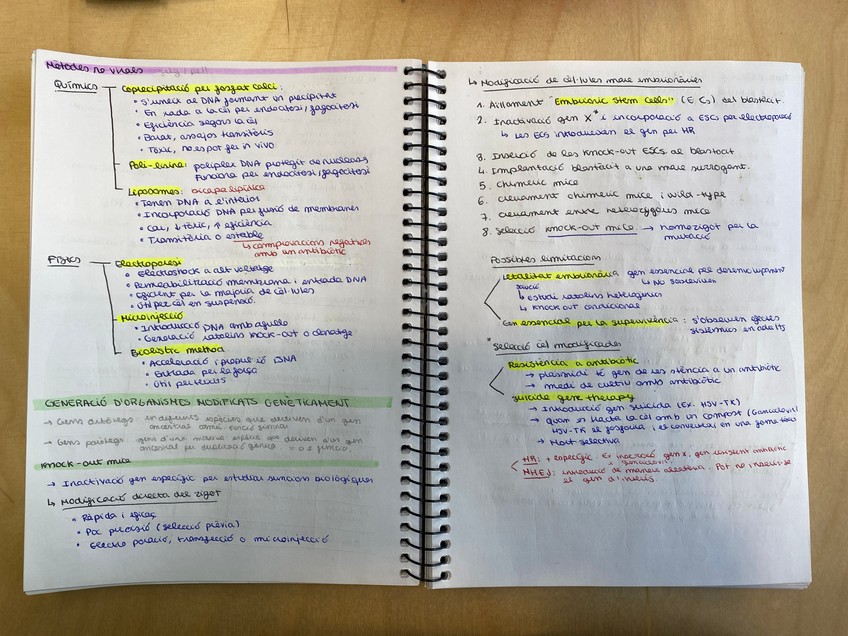 Mètodes no virals
Químics
Coprecipitació per fosfat càlci:
• S'uneix al DNA formant un precipitat
• En rada a la cèl per endocitosi, fagocitosi
• Eficiència segons la cèl
• Barat, assajos transitoris
• Tòxic, no es pot fer in vivo
Poli-lisina: poliplex DNA protegit de nucleases
Funciona per endocitosi, fagocitosi
Liposomes: bicapa lipídica
• Tenen DNA a l'interior
• Incorporació DNA per fusió de membranes
• Car, ↓ tòxic, ↑ eficiència
• Transitòria o estable
↳ comprovacions negatives
amb un antibiòtic
Físics
Electroporesi
• Electroshock a alt voltatge
• Permeabilització membrana i entrada DNA
• Eficient per la majoria de cèl·lules
• Útil per cèl en suspensió.
Microinjecció
• Introducció DNA amb agulla
• Generació ratolins knock-out o clonatge
Biolistic method
• Acceleració i propulsió DNA
• Entrada per la força
• Útil per
GENERACIÓ D'ORGANISMES MODIFICATS GENÈTICAMENT
→ Gens ortòlegs: en diferents espècies que deriven d'un gen
ancestral comú. Funció similar
→ Gens paròlegs: gens d'una mateixa espècie que deriven d'un gen
ancestral per duplicació gènica. funció
Knock-out mice
→ Inactivació gen específic per estudiar funcions biològiques
↳ Modificació directa del zigot
• Ràpida i eficaç
• Poc precisió (selecció prèvia)
• Electroporació, transfecció o microinjecció
↳ Modificació de cèl·lules mare embrionàries
1. Aïllament "Embryonic Stem Cells" (ESCs) del blastòcit.
2. Inactivació gen X⁺ i incorporació a ESCs per electroporació
↳ Les ESCs introdueixen el gen per HR
3. Inserció de les knock-out ESCs al blastocit
4. Implantació blastòcit a una mare surrogant.
5. Chimeric mice
6. Creuament chimeric mice i wild-type
7. Creuament entre heterozygous mice
8. Selecció knock-out mice → homozigot per la
mutació
Possibles limitacions
Letalitat embrionària gen essencial pel desenvolupament
solució ↳ No s'obtenen
↳ Estudi ratolins heterogenics
↳ Knock out condicional
Gen essencial per la supervivència: s'observen efectes
sistèmics en adults
*Selecció cèl modificades
Resistència a antibiòtic
→ plasmidi té gen de resistència a un antibiòtic
→ medi de cultiu amb antibiòtic
Suicide gene therapy
→ Introducció gen suicida (Ex. HSV-TK)
→ Quan es tracta la cèl amb un compost (Ganciclovir)
HSV-TK el fosforila i el converteix en una forma tòxica
→ Mort selectiva
HR: + específic. Ex inserció gen x, gen resistent antibiòtic
NHEJ: introducció de manera aleatòria. Pot no inserir-se
el gen d'interès.